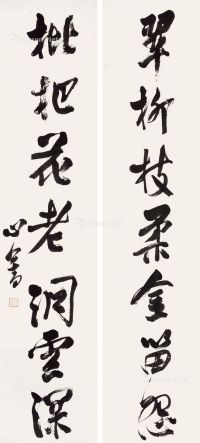 翠柳枝柔金笛怨
枇杷花老洞雲深
心畬